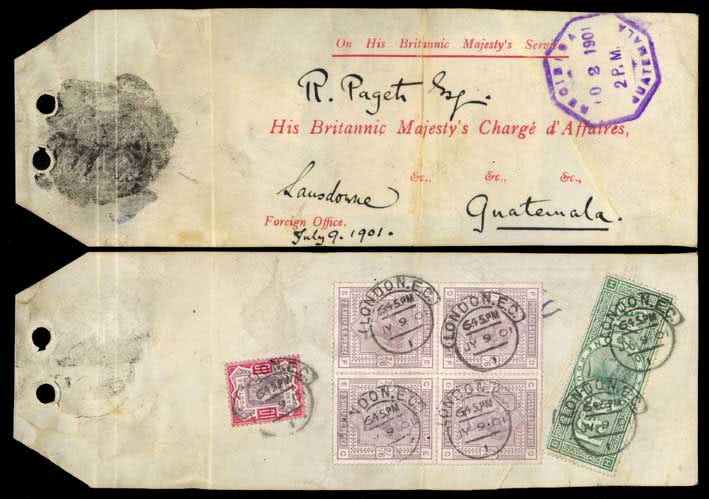 On His Britannic Majesty's Service
R. Paget Esq.
His Britannic Majesty's Chargé d'Affaires,
&c., &c., &c.,
Lansdowne
Guatemala.
Foreign Office.
July 9. 1901.
2 1901
2 P.M.
GUATEMALA
LONDON.E.C.
6.45PM
JY 9 01
1
LONDON.E.C.
6.45PM
JY 9 01
1
LONDON.E.C.
6.45PM
JY 9 01
1
LONDON.E.C.
6.45PM
JY 9 01
1
LONDON.E.C.
6.45PM
LONDON.E.C.
6.45PM